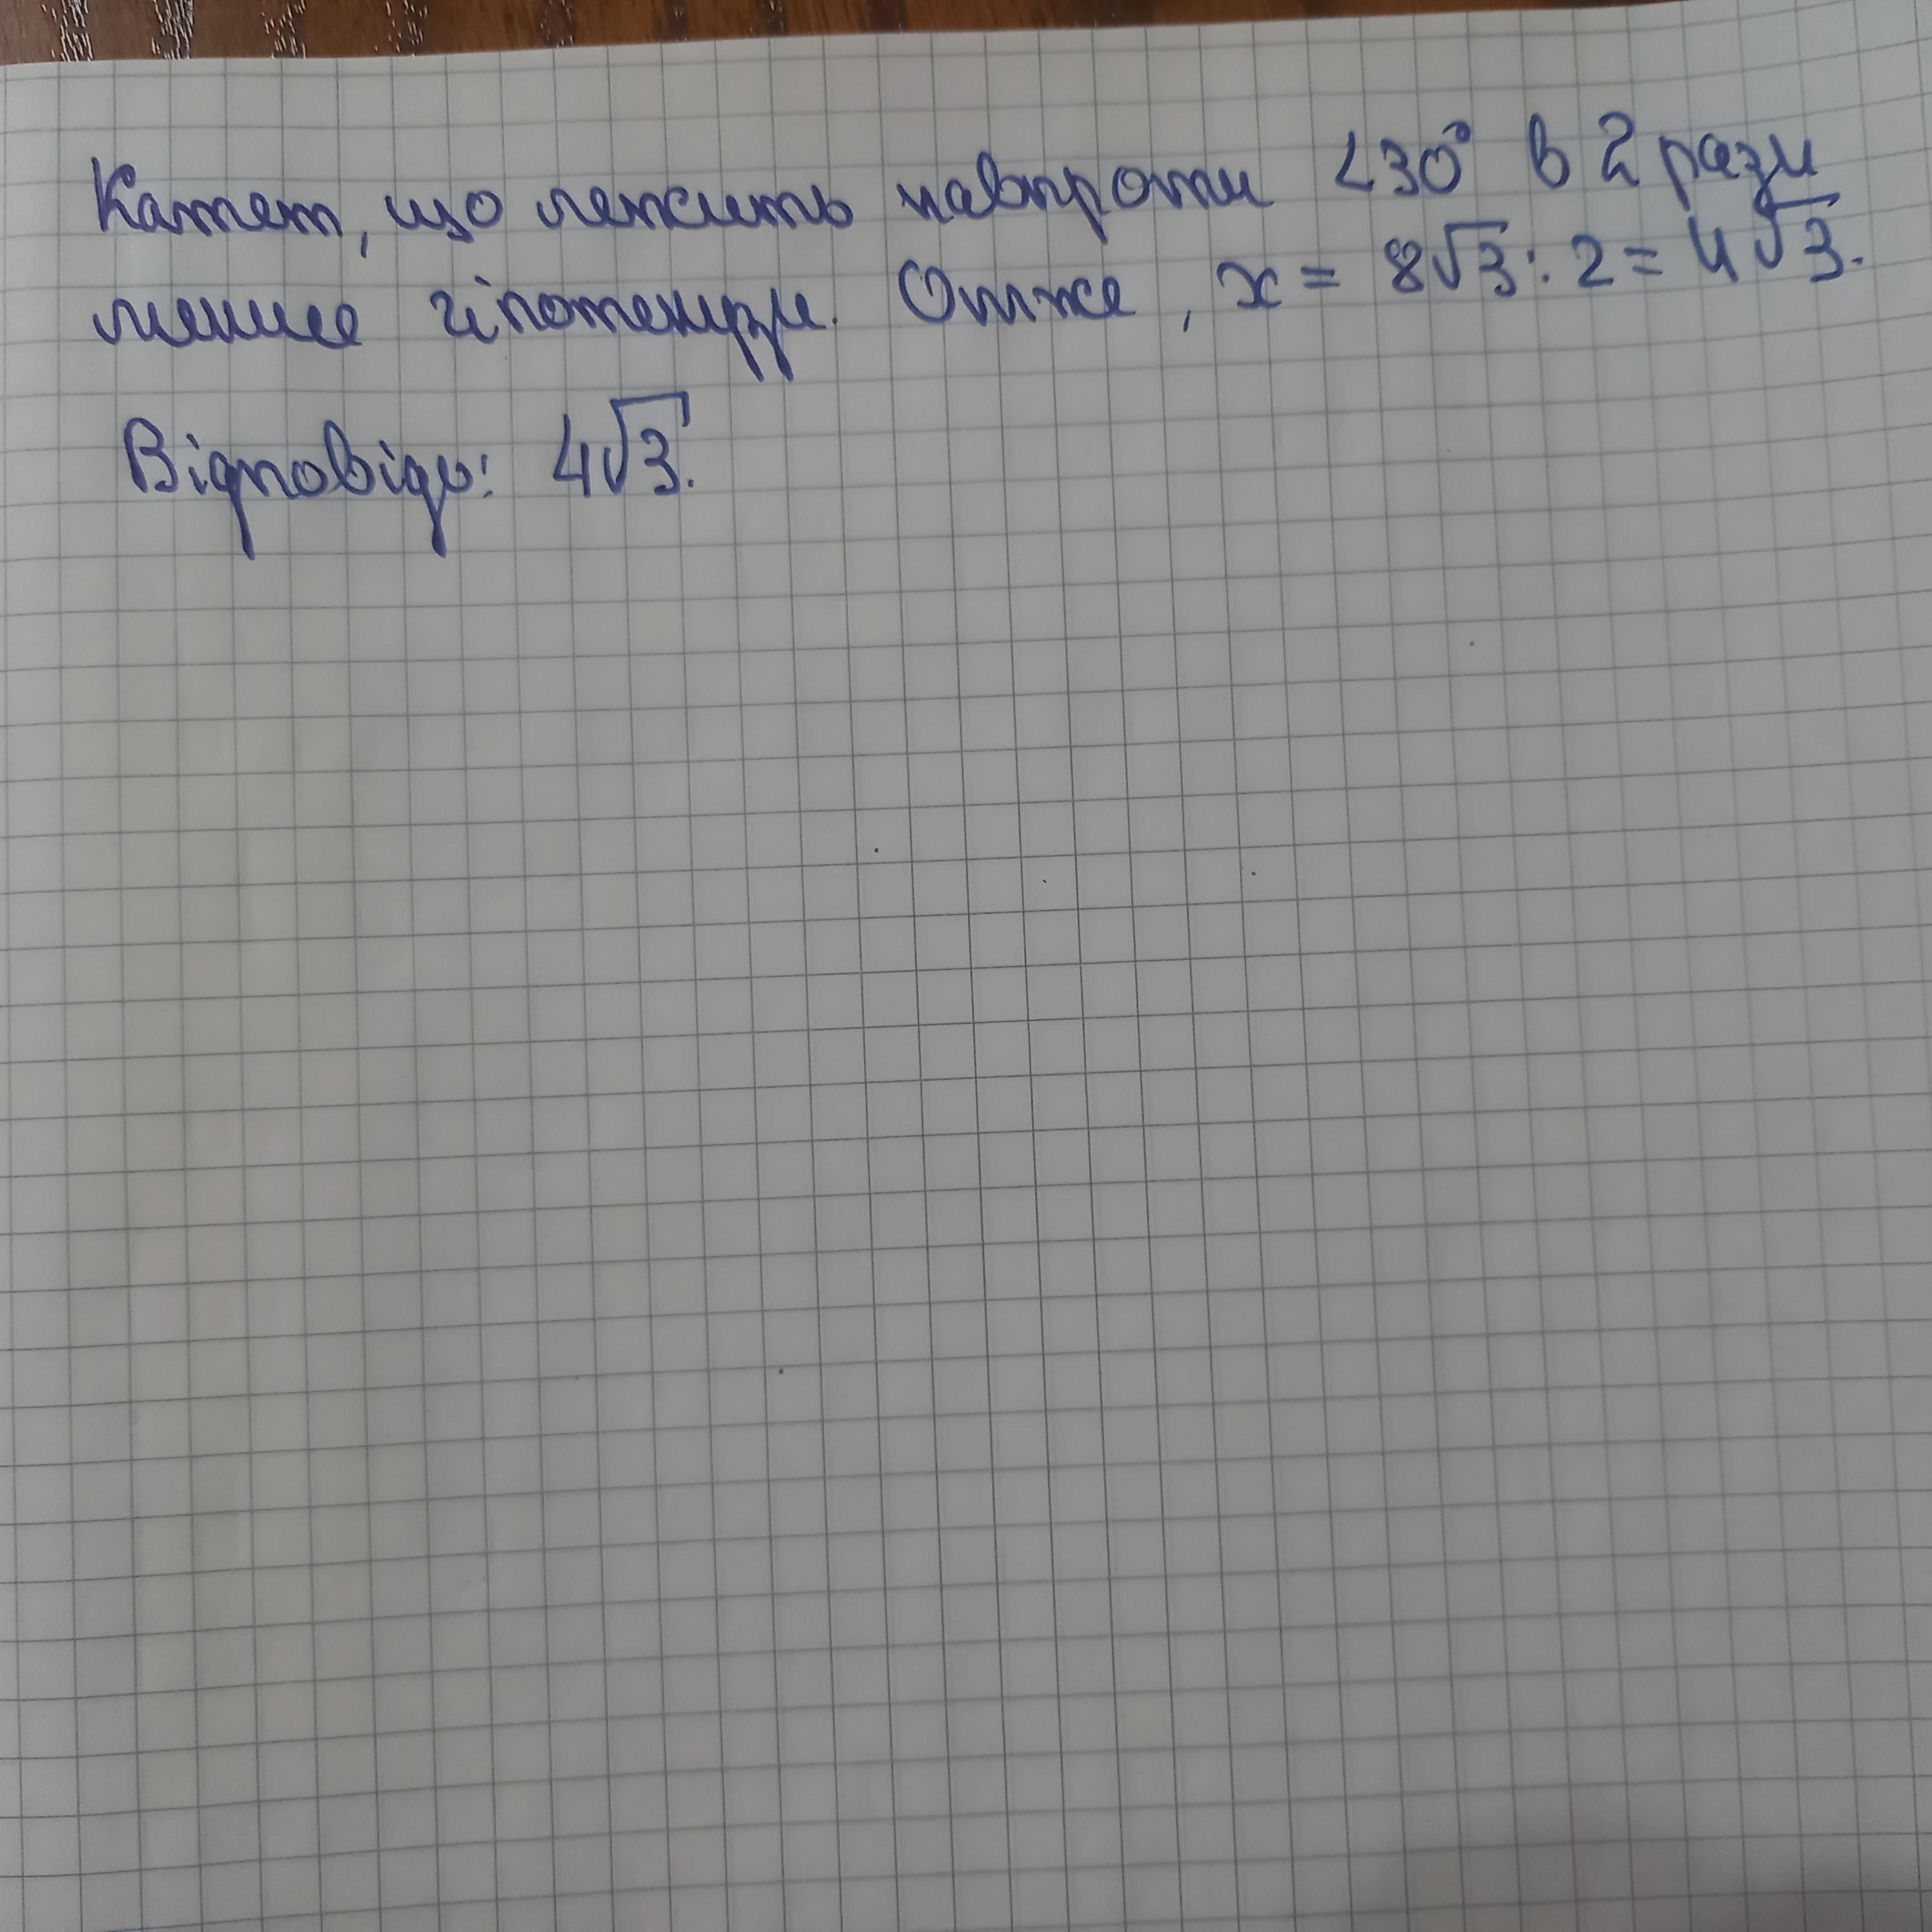 Катет, що лежить навпроти <30° в 2 рази
менше гіпотенузи. Отже, x = 8√3 : 2 = 4√3.
Відповідь: 4√3.